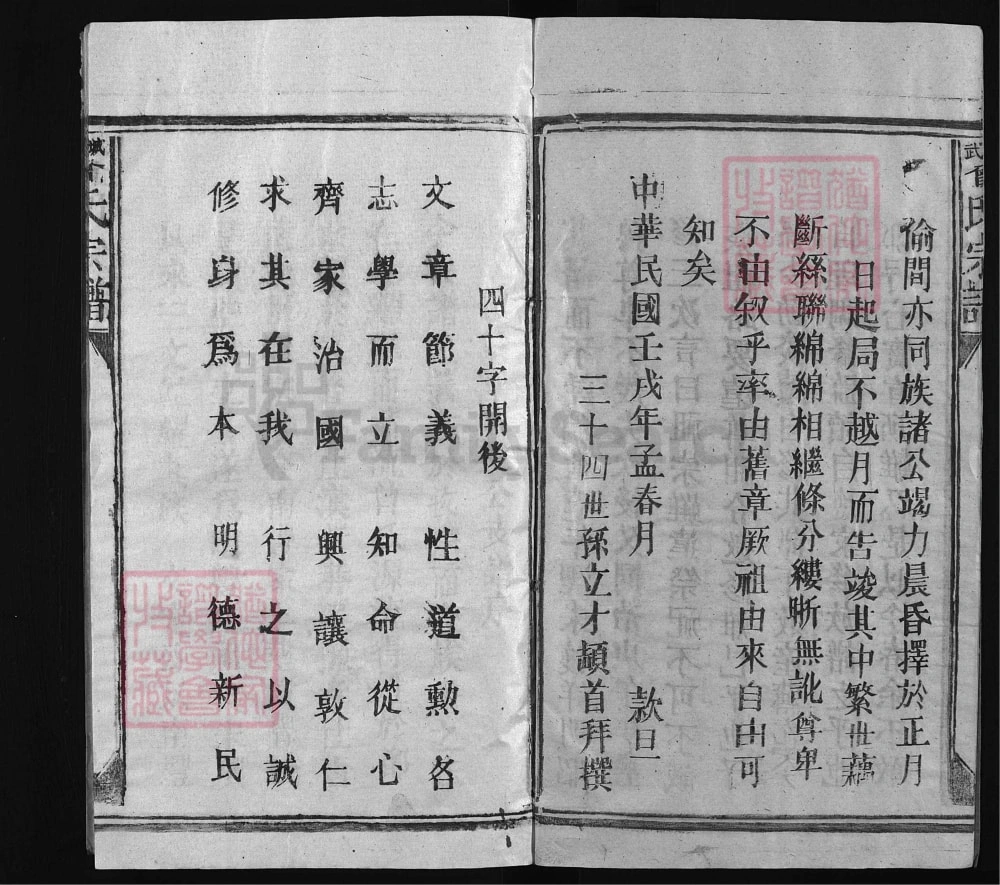 偷間亦同族諸公竭力晨昏擇於正月
日起局不越月而告竣其中繁世藕
斷絲聯綿綿相繼條分縷晰無訛尊卑
不由叙乎率由舊章厥祖由來自由可
知矣
中華民國壬戌年孟春月 款日一
三十四世孫立才頴首拜撰
四十字開後
文章節義 性道勳名
志學而立 知命從心
齊家治國 興讓敦仁
求其在我 行之以誠
修身爲本 明德新民
武
氏宗譜
城
氏宗譜